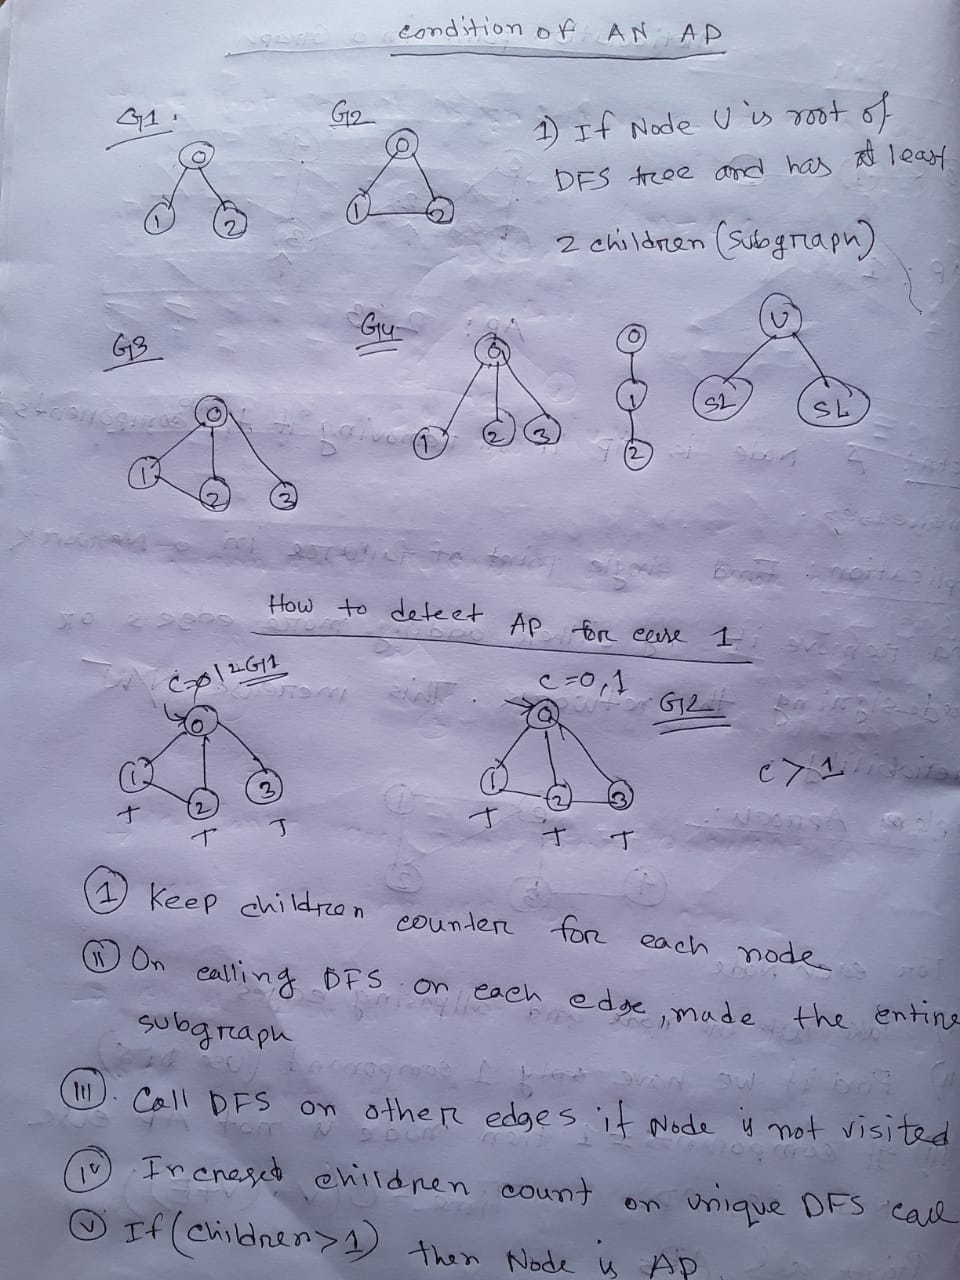 condition of AN AP
G1.
G2
0
1
2
0
1
2
1) If Node U is root of
DFS tree and has at least
2 children (subgraph)
G3
G4
0
1
2
3
0
1
2
3
0
1
2
U
SL
SL
How to detect AP for case 1
G1
c=0,1
G2
0
1
2
3
T
T
T
0
1
2
3
T
T
T
c>1
I Keep children counter for each node
II On calling DFS on each edge, made the entire
subgraph
III. Call DFS on other edges if Node is not visited
IV Increased children count on unique DFS call
V If (children>1) then Node is AP